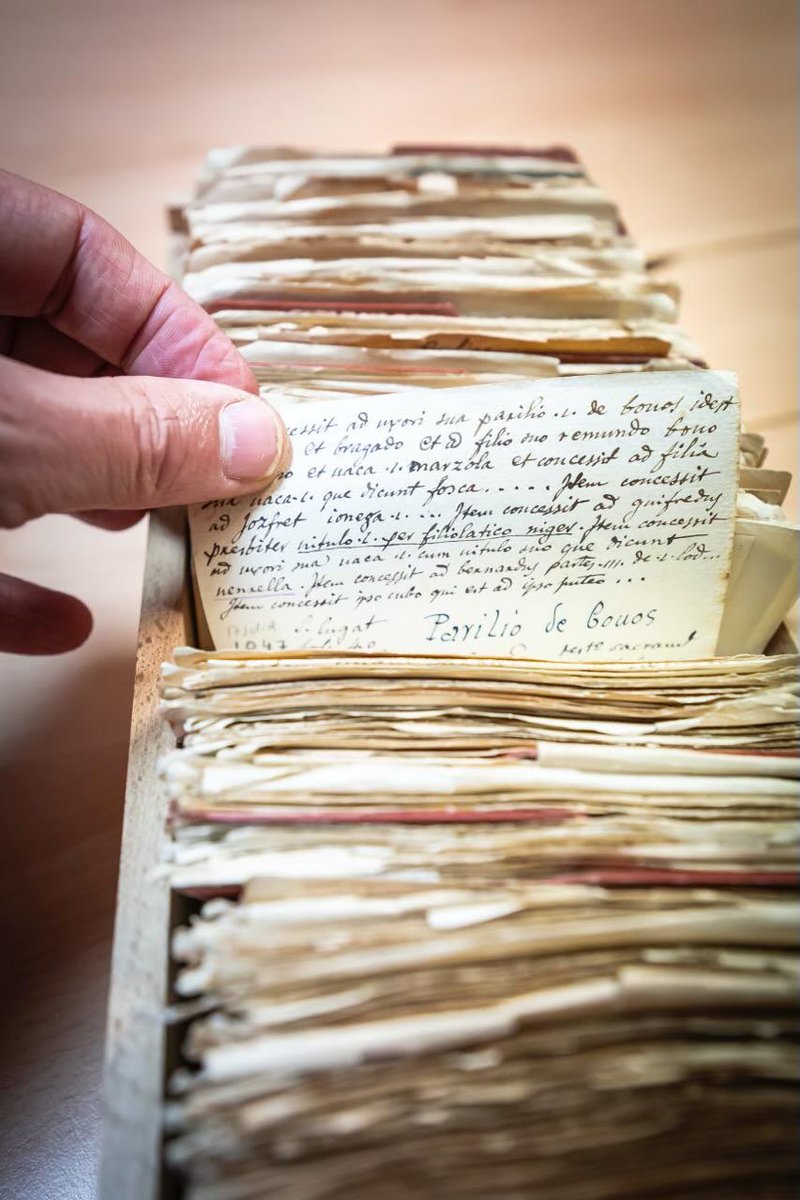 cessit ad uxori sua parilio .1. de bouos idest
et bragado et ad filio suo remundo bouo
et uaca .1. marzola et concessit ad filia
sua uaca .1. que dicunt fosca..... Item concessit
ad jozfret ionega .1. ... Item concessit ad guifredus
presbiter uitulo .1. per filiolatico niger. Item concessit
ad uxori sua uaca .1. cum uitulo suo que dicunt
nenzella. Item concessit ad bernardus partes .III. de .1.
Item concessit ipso cubo qui est ad ipso puteo ...
S. Cugat Parilio de bouos
1047 sacram